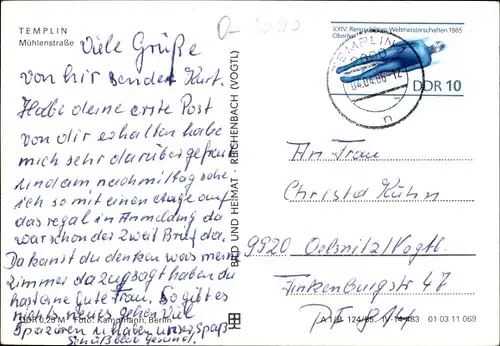 TEMPLIN
Mühlenstraße
Viele Grüße
von hir sendet Kurt.
Habe deine erste Post
von dir erhalten habe
mich sehr darüber gefreut
und am nachmittag sehe
ich so mit einen etage auf
das regal in Anmeldung da
war schon der zweit Brief da.
Da kanst du denken was mein
zimmer dazu gsagt haben du
hast eine Gute Frau. So gibt es
nichts neues gehen viel
Spazieren u. haben unser Spaß
Schüß bleib Gesund.
DDR 0,25 M Foto: Kampmann, Berlin
BILD UND HEIMAT · REICHENBACH (VOGTL)
XXIV. Rennrodel-Weltmeisterschaften 1985
Oberhof
DDR 10
TEMPLIN
04.04.86-12
n
An Frau
Christa Kühn
9920 Oelsnitz/Vogtl.
Finkenburgstr 47
01 03 11 069